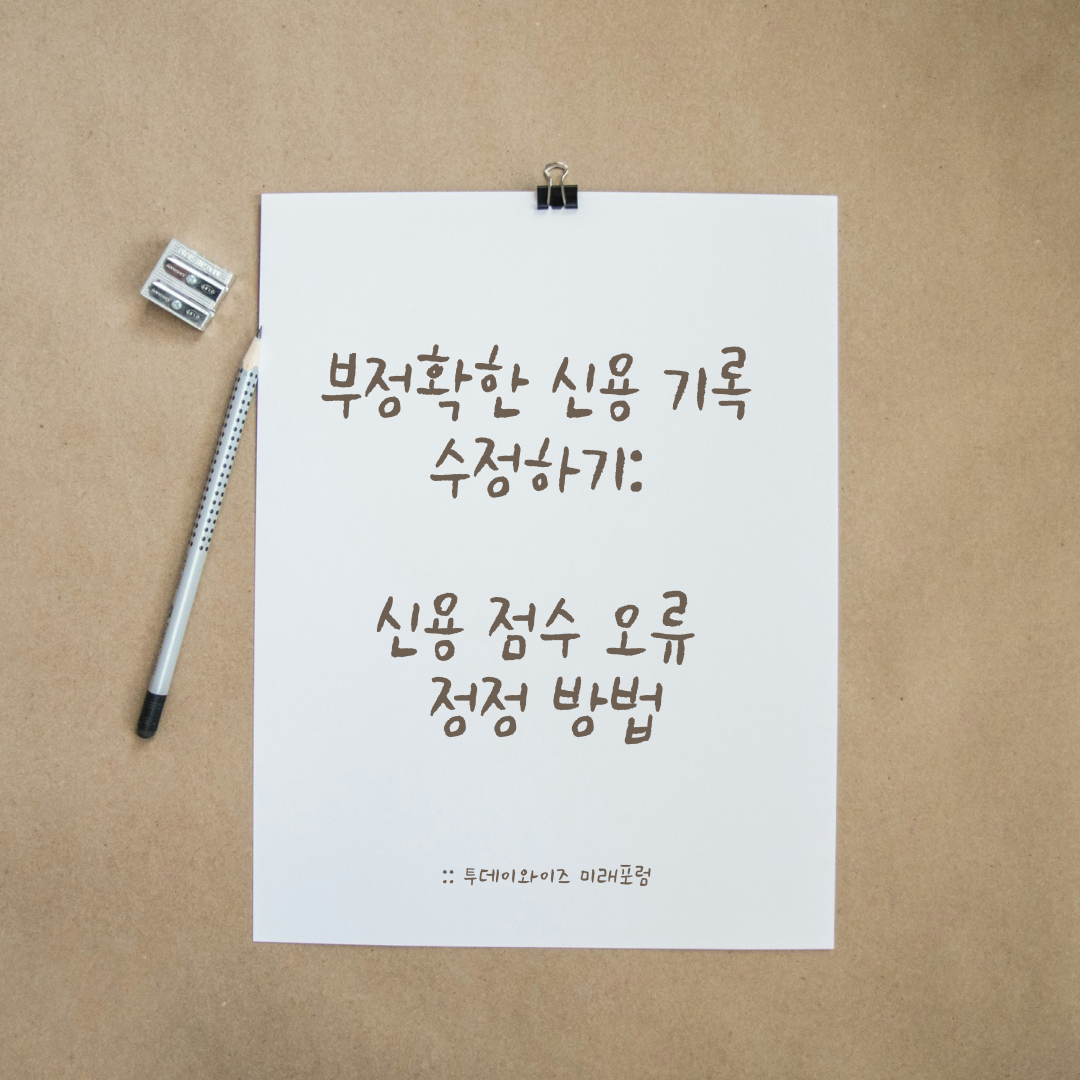 부정확한 신용 기록
수정하기:
신용 점수 오류
정정 방법
:: 투데이와이즈 미래포럼